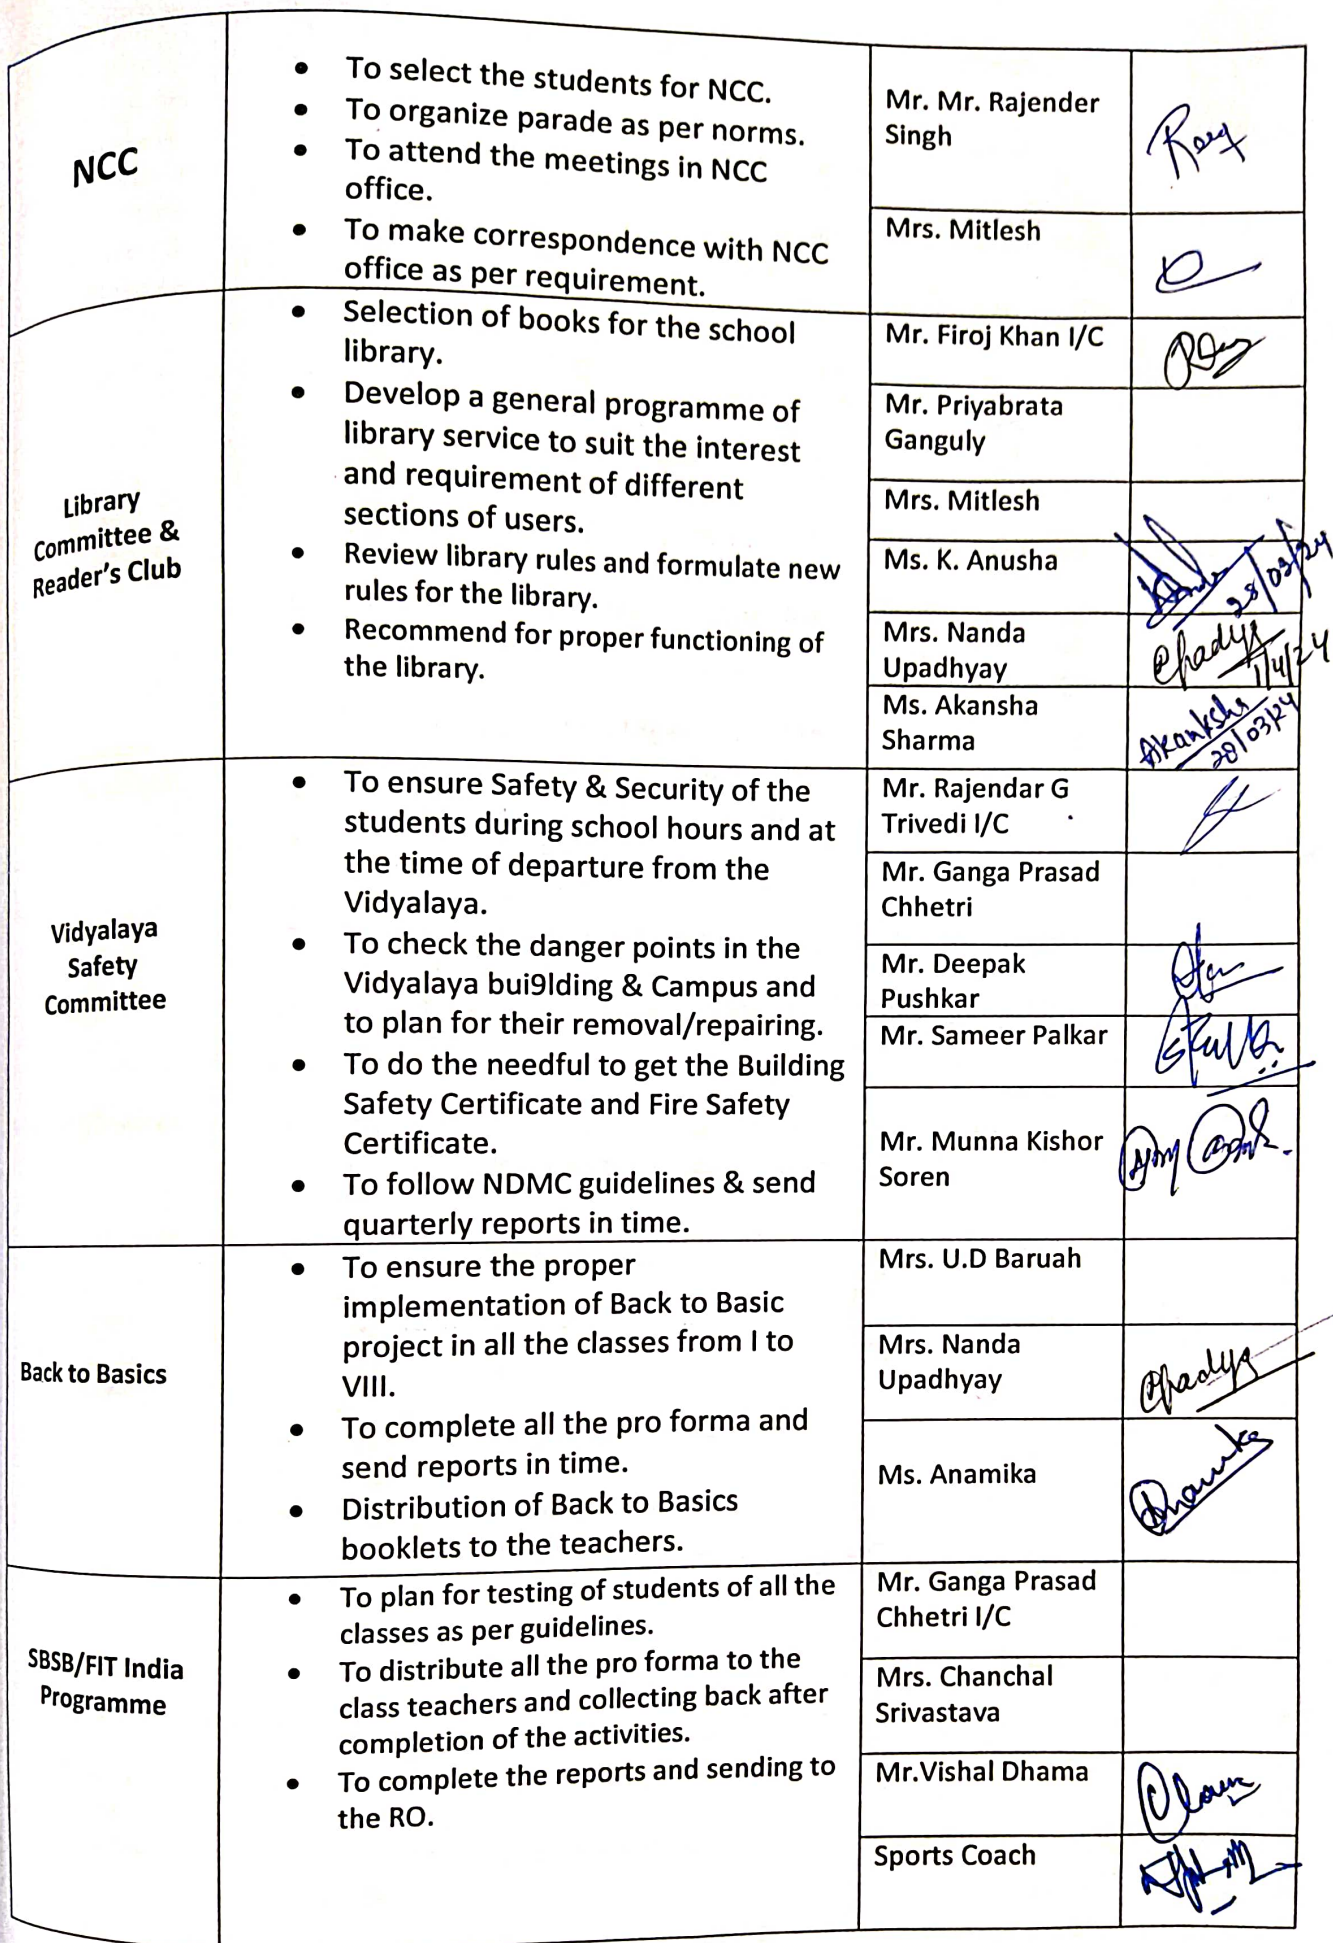 NCC
• To select the students for NCC.
• To organize parade as per norms.
• To attend the meetings in NCC
office.
• To make correspondence with NCC
office as per requirement.
Mr. Mr. Rajender
Singh
Mrs. Mitlesh
Library
Committee &
Reader's Club
• Selection of books for the school
library.
• Develop a general programme of
library service to suit the interest
and requirement of different
sections of users.
• Review library rules and formulate new
rules for the library.
• Recommend for proper functioning of
the library.
Mr. Firoj Khan I/C
Mr. Priyabrata
Ganguly
Mrs. Mitlesh
Ms. K. Anusha
28/03/24
Mrs. Nanda
Upadhyay
1/4/24
Ms. Akansha
Sharma
Akanksha
28/03/24
Vidyalaya
Safety
Committee
• To ensure Safety & Security of the
students during school hours and at
the time of departure from the
Vidyalaya.
• To check the danger points in the
Vidyalaya bui9lding & Campus and
to plan for their removal/repairing.
• To do the needful to get the Building
Safety Certificate and Fire Safety
Certificate.
• To follow NDMC guidelines & send
quarterly reports in time.
Mr. Rajendar G
Trivedi I/C
Mr. Ganga Prasad
Chhetri
Mr. Deepak
Pushkar
Mr. Sameer Palkar
Mr. Munna Kishor
Soren
Back to Basics
• To ensure the proper
implementation of Back to Basic
project in all the classes from I to
VIII.
• To complete all the pro forma and
send reports in time.
• Distribution of Back to Basics
booklets to the teachers.
Mrs. U.D Baruah
Mrs. Nanda
Upadhyay
Ms. Anamika
SBSB/FIT India
Programme
• To plan for testing of students of all the
classes as per guidelines.
• To distribute all the pro forma to the
class teachers and collecting back after
completion of the activities.
• To complete the reports and sending to
the RO.
Mr. Ganga Prasad
Chhetri I/C
Mrs. Chanchal
Srivastava
Mr.Vishal Dhama
Sports Coach